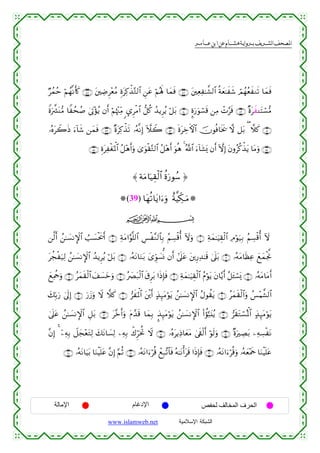 المصحف الشريف برواية هشام عن ابن عامر
فَمَا تَنفَعُهُمْ شَفَـٰعَةُ ٱلشَّـٰفِعِينَ فَمَا لَهُمْ عَنِ ٱلتَّذْكِرَةِ مُعْرِضِينَ كَأَنَّهُمْ حُمُرٌ
مُّسْتَنفَرَةٌ فَرَّتْ مِن قَسْوَرَةٍۭ بَلْ يُرِيدُ كُلُّ ٱمْرِئٍ مِّنْهُمْ أَن يُؤْتَىٰ صُحُفًا مُّنَشَّرَةً
كَلَّا ۖ بَل لَّا يَخَافُونَ ٱلْـَٔاخِرَةَ كَلَّآ إِنَّهُۥ تَذْكِرَةٌ فَمَن شَآءَ ذَكَرَهُۥ
وَمَا يَذْكُرُونَ إِلَّآ أَن يَشَآءَ ٱللَّهُ ۚ هُوَ أَهْلُ ٱلتَّقْوَىٰ وَأَهْلُ ٱلْمَغْفِرَةِ
سُورَةُ ٱلْقِيَامَةِ
مَكِّيَّةٌ وَءَايَاتُهَا (39)
بسم الله الرحمن الرحيم
لَآ أُقْسِمُ بِيَوْمِ ٱلْقِيَـٰمَةِ وَلَآ أُقْسِمُ بِٱلنَّفْسِ ٱللَّوَّامَةِ أَيَحْسَبُ ٱلْإِنسَـٰنُ أَلَّن
نَّجْمَعَ عِظَامَهُۥ بَلَىٰ قَـٰدِرِينَ عَلَىٰٓ أَن نُّسَوِّيَ بَنَانَهُۥ بَلْ يُرِيدُ ٱلْإِنسَـٰنُ لِيَفْجُرَ
أَمَامَهُۥ يَسْـَٔلُ أَيَّانَ يَوْمُ ٱلْقِيَـٰمَةِ فَإِذَا بَرِقَ ٱلْبَصَرُ وَخَسَفَ ٱلْقَمَرُ وَجُمِعَ
ٱلشَّمْسُ وَٱلْقَمَرُ يَقُولُ ٱلْإِنسَـٰنُ يَوْمَئِذٍ أَيْنَ ٱلْمَفَرُّ كَلَّا لَا وَزَرَ إِلَىٰ رَبِّكَ
يَوْمَئِذٍ ٱلْمُسْتَقَرُّ يُنَبَّؤُا۟ ٱلْإِنسَـٰنُ يَوْمَئِذٍۭ بِمَا قَدَّمَ وَأَخَّرَ بَلِ ٱلْإِنسَـٰنُ عَلَىٰ
نَفْسِهِۦ بَصِيرَةٌ وَلَوْ أَلْقَىٰ مَعَاذِيرَهُۥ لَا تُحَرِّكْ بِهِۦ لِسَانَكَ لِتَعْجَلَ بِهِۦٓ إِنَّ
عَلَيْنَا جَمْعَهُۥ وَقُرْءَانَهُۥ فَإِذَا قَرَأْنَـٰهُ فَٱتَّبِعْ قُرْءَانَهُۥ ثُمَّ إِنَّ عَلَيْنَا بَيَانَهُۥ
الحرف المخالف لحفص الإدغام الإمالة
الشبكة الإسلامية www.islamweb.net